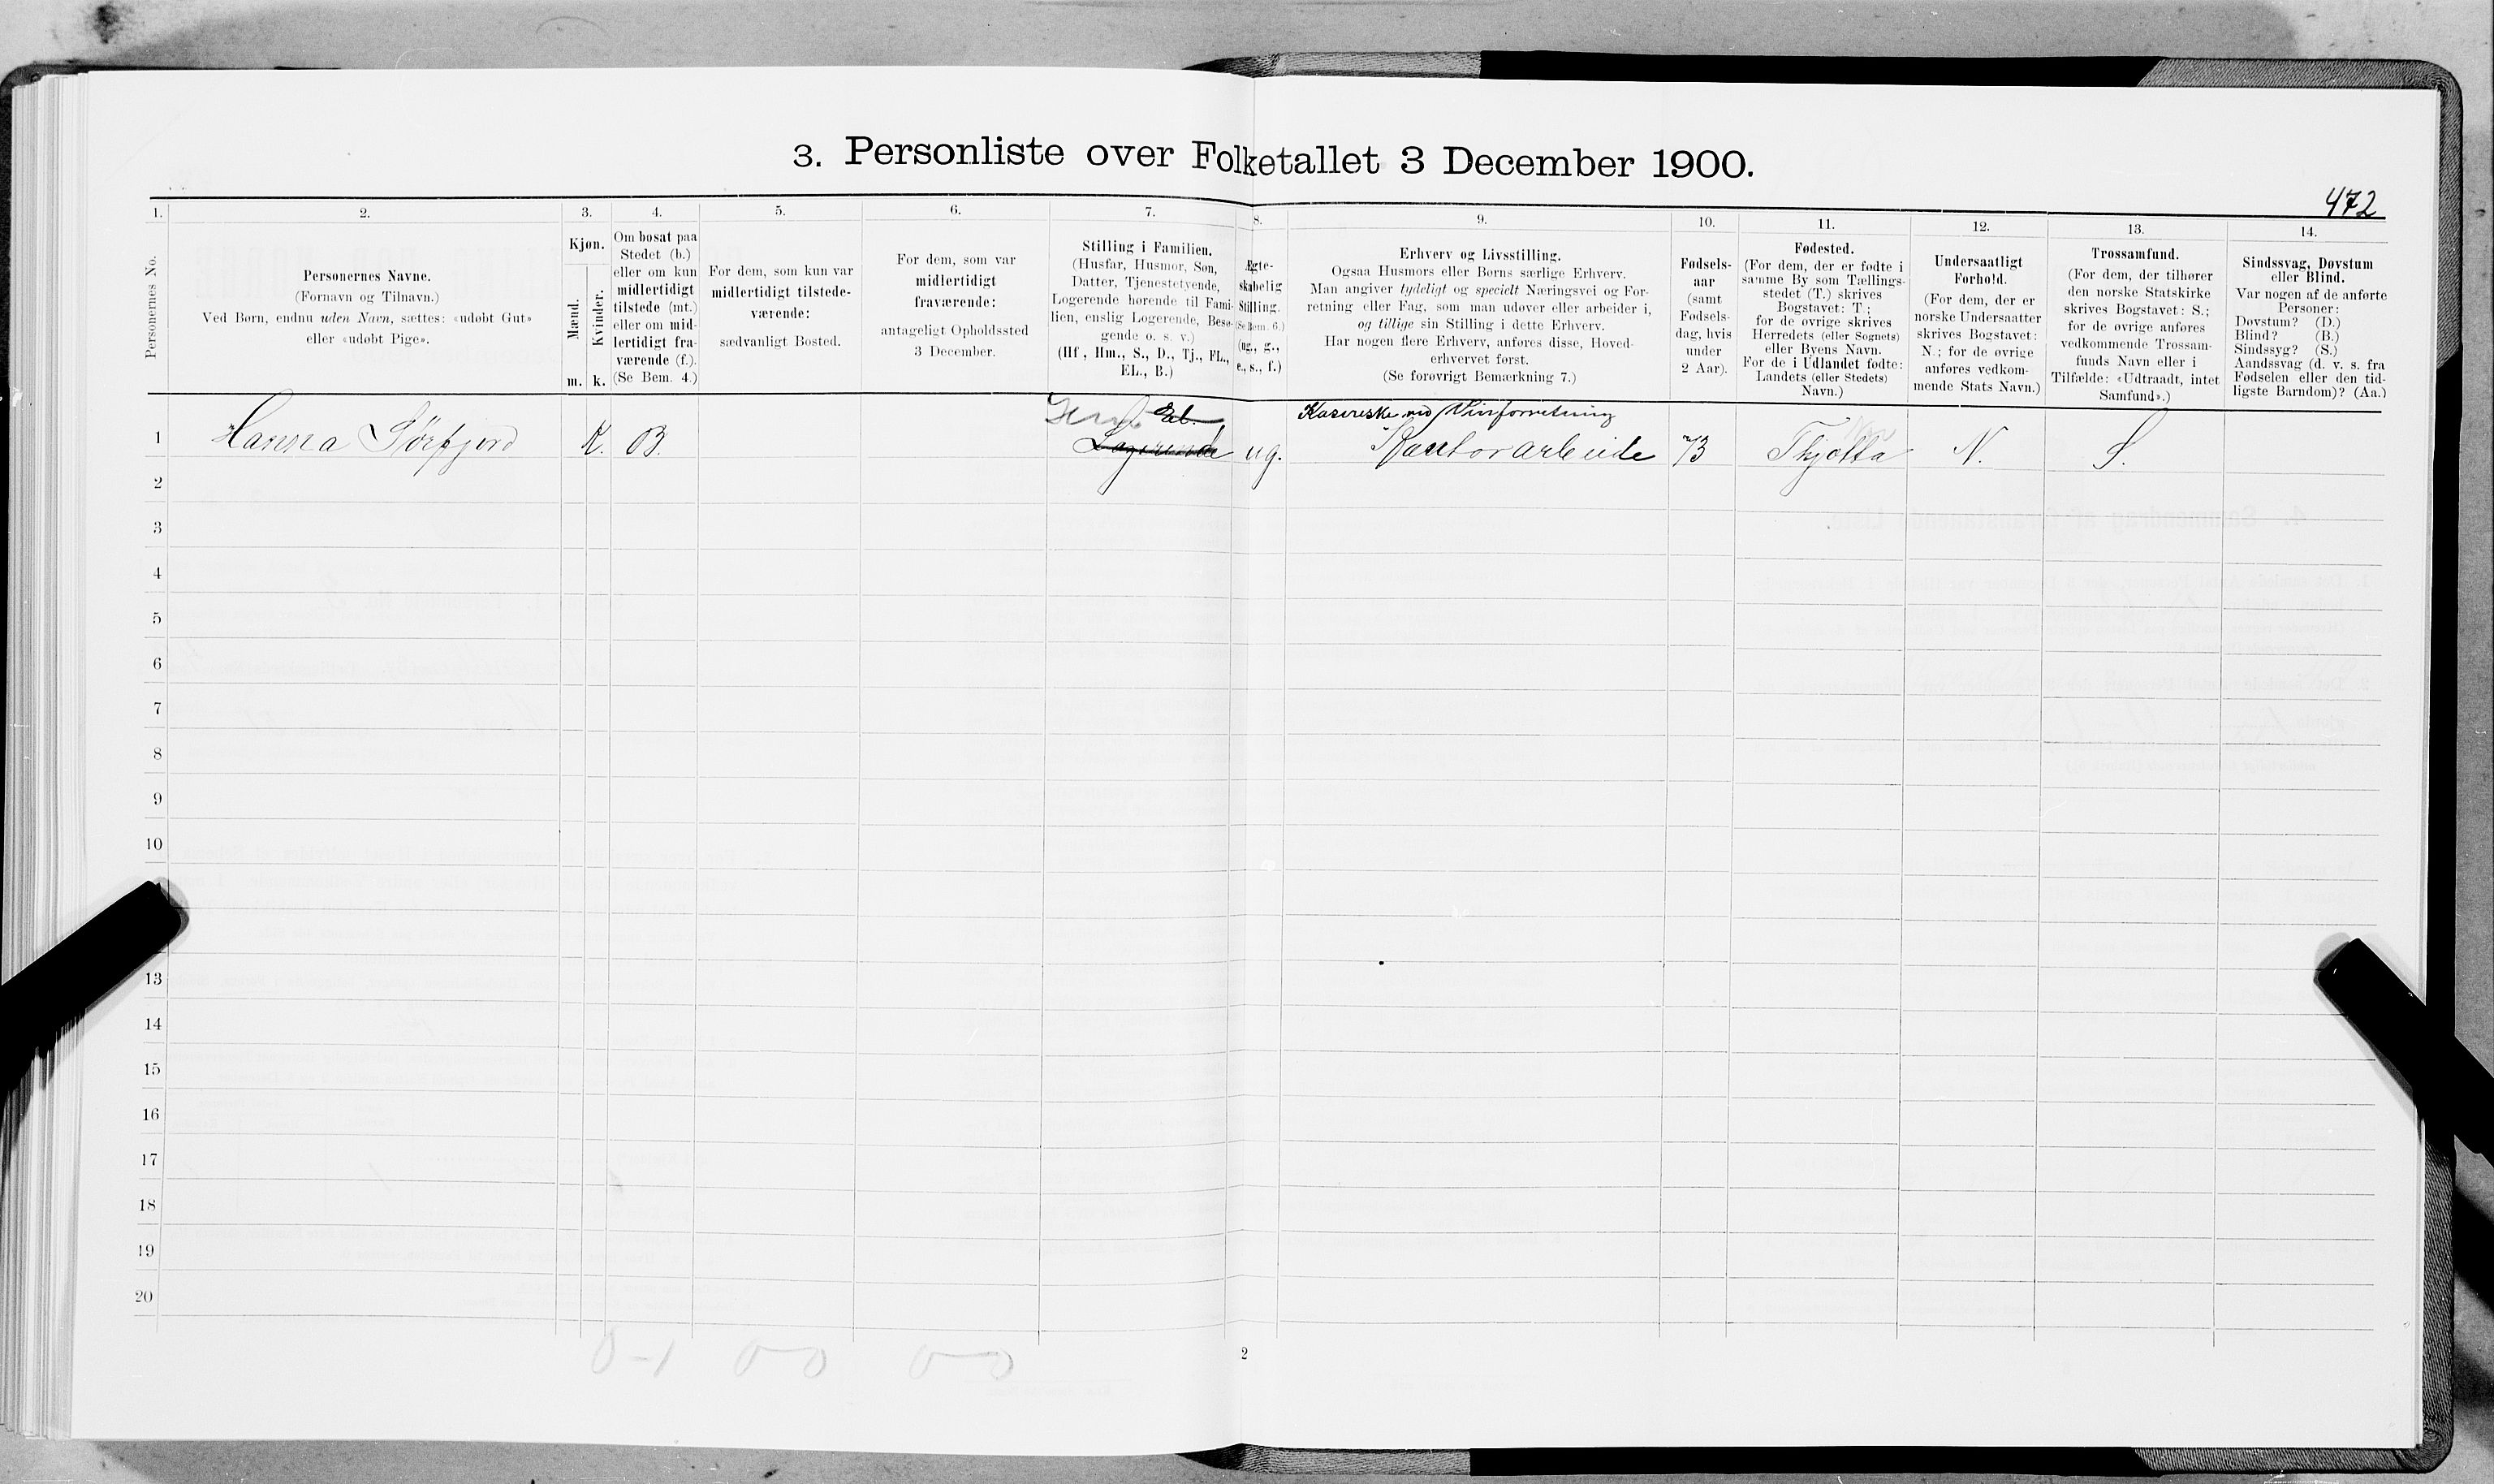 3. Personliste over Folketallet 3 December 1900.
472
1. 2. 3. 4. 5. 6. 7. 8. 9. 10. 11. 12. 13. 14.
Personernes No.
Personernes Navne.
(Fornavn og Tilnavn.)
Ved Børn, endnu uden Navn, sættes: «udøbt Gut»
eller «udøbt Pige».
Kjøn.
Mænd.
Kvinder.
m. k.
Om bosat paa
Stedet (b.)
eller om kun
midlertidigt
tilstede (mt.)
eller om mid-
lertidigt fra-
værende (f.).
(Se Bem. 4.)
For dem, som kun var
midlertidigt tilstede-
værende:
sædvanligt Bosted.
For dem, som var
midlertidigt
fraværende:
antageligt Opholdssted
3 December.
Stilling i Familien.
(Husfar, Husmor, Søn,
Datter, Tjenestetyende,
Logerende hørende til Fami-
lien, enslig Logerende, Besø-
gende o. s. v.)
(Hf., Hm., S., D., Tj., FL.,
EL., B.)
Ægte-
skabelig
Stilling.
(Se Bem. 6.)
(ug., g.,
e., s., f.)
Erhverv og Livsstilling.
Ogsaa Husmors eller Børns særlige Erhverv.
Man angiver tydeligt og specielt Næringsvei og For-
retning eller Fag, som man udøver eller arbeider i,
og tillige sin Stilling i dette Erhverv.
Har nogen flere Erhverv, anføres disse, Hoved-
erhvervet først.
(Se forøvrigt Bemærkning 7.)
Fødsels-
aar
(samt
Fødsels-
dag, hvis
under
2 Aar).
Fødested.
(For dem, der er fødte i
samme By som Tællings-
stedet (T.) skrives
Bogstavet: T.;
for de øvrige skrives
Herredets (eller Sognets)
eller Byens Navn.
For de i Udlandet fødte:
Landets (eller Stedets)
Navn.)
Undersaatligt
Forhold.
(For dem, der er
norske Undersaatter
skrives Bogstavet:
N.; for de øvrige
anføres vedkom-
mende Stats Navn.)
Trossamfund.
(For dem, der tilhører
den norske Statskirke
skrives Bogstavet: S.;
for de øvrige anføres
vedkommende Trossam-
funds Navn eller i
Tilfælde: «Udtraadt, intet
Samfund».)
Sindssvag, Døvstum
eller Blind.
Var nogen af de anførte
Personer:
Døvstum? (D.)
Blind? (B.)
Sindssyg? (S.)
Aandssvag (d. v. s. fra
Fødselen eller den tid-
ligste Barndom)? (Aa.)
El. Kasereske ved Vinforretning
1 Hanna Sörfjord K. B. Logerende ug. Kontorarbeide 73 Thjøtta N. S.
2
3
4
5
6
7
8
9
10
13
14
15
16
17
18
19
20
0-1 0-0 0-0
2